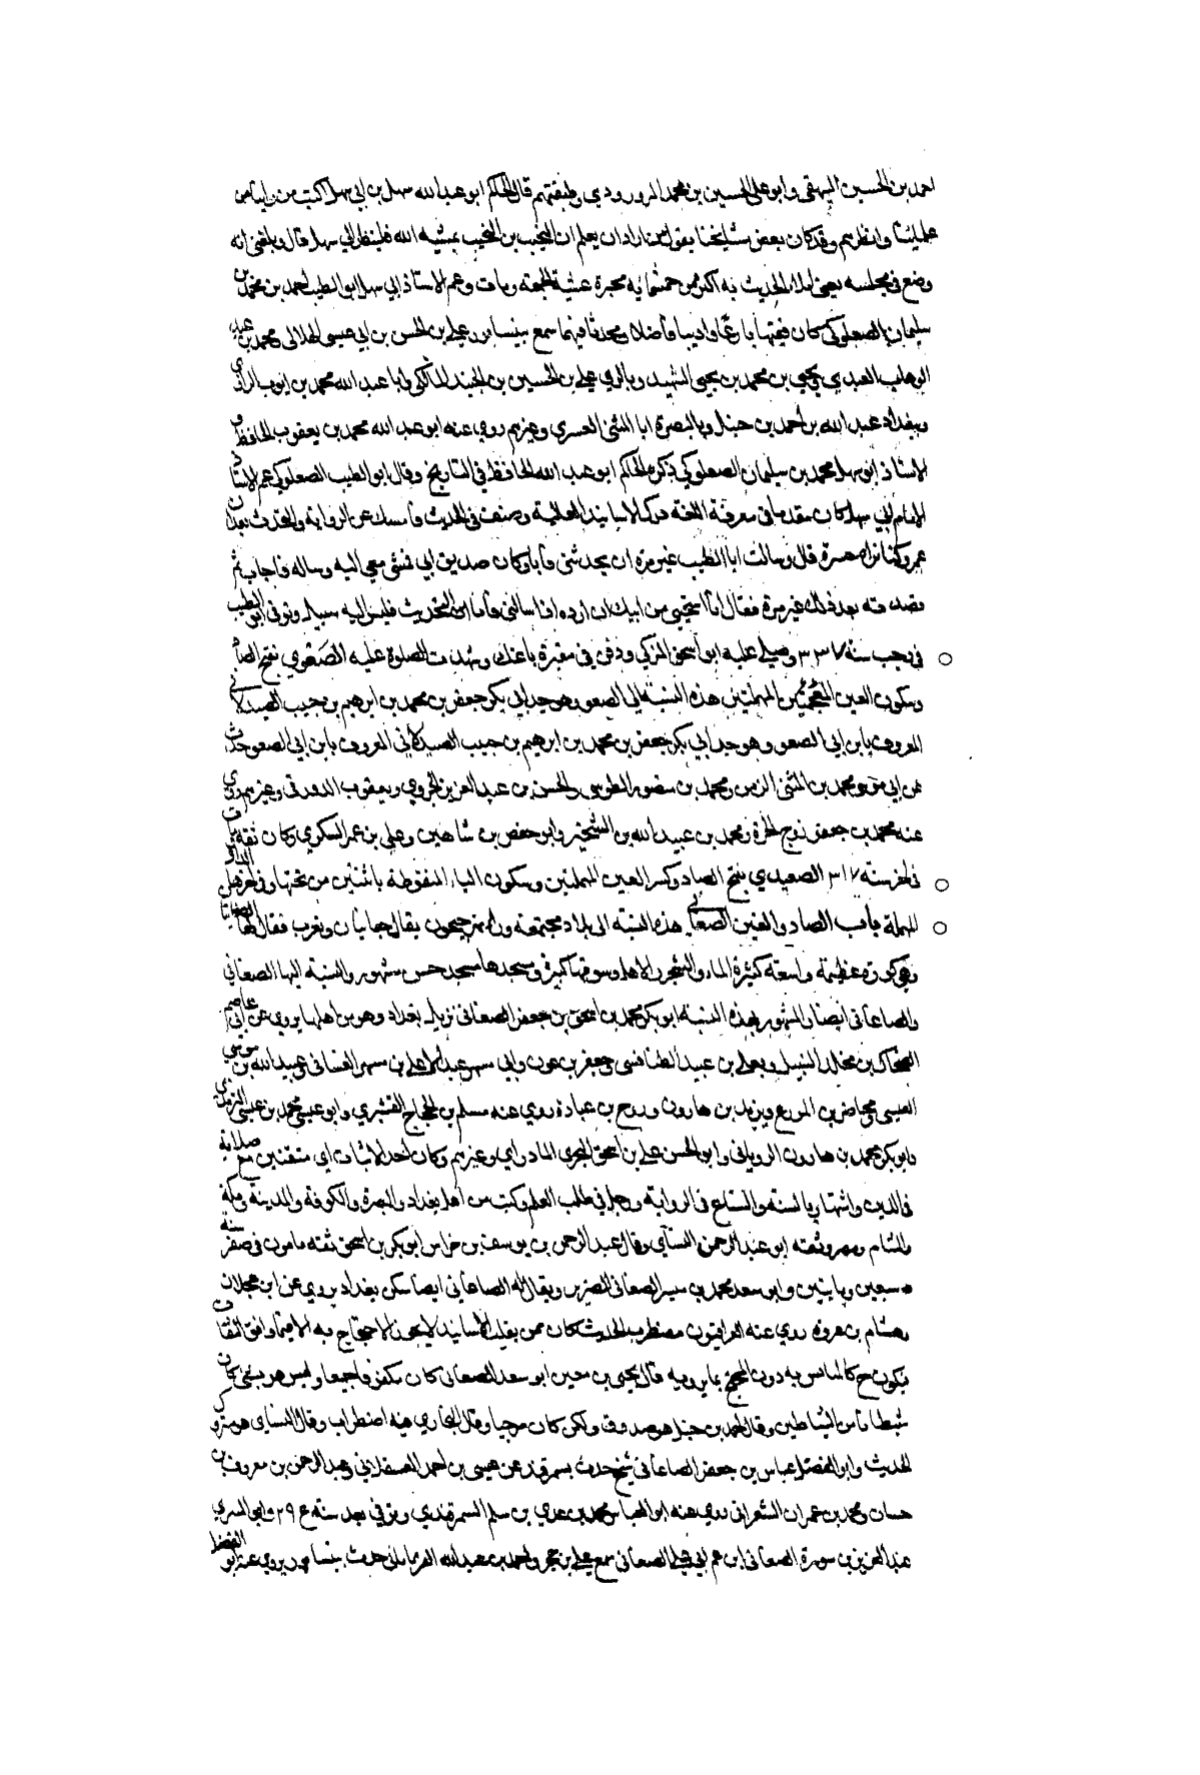 احمد بن الحسين البيهقي وابو علي الحسين بن محمد المروروذي وطبقتهم قال الحاكم ابو عبد الله سهل بن ابي سهل اكتب من رايناه من
علمائنا وانظرهم وقد كان بعض مشايخنا يقول من اراد ان يعلم ان النجيب بن النجيب بمشيه الله فلينظر الي سهل قال وبلغني انه
وضع في مجلسه يعني املاء الحديث به اكثر من خمسمايه محبرة عشية الجمعه ومات وعم الاستاذ ابي سهل ابو الطيب احمد بن محمد بن
سليمان الصعلوكي كان فقيها بارعا واديبا فاضلا ومحدثا فهما سمع بنيسابور علي بن الحسن بن ابي عيسى الهلالي ومحمد بن عبد
الوهاب العبدي ويحيى بن محمد بن يحيى الشهيد وبالري علي بن الحسين بن الجنيد المالكي وابا عبد الله محمد بن ايوب الرازي
وببغداد عبد الله بن احمد بن حنبل وبالبصرة ابا المثنى العنبري وغيرهم روي عنه ابو عبد الله محمد بن يعقوب الحافظ و
الاستاذ ابو سهل محمد بن سليمان الصعلوكي ذكره الحاكم ابو عبد الله الحافظ في التاريخ وقال ابو الطيب الصعلوكي عم الاستاذ
الامام ابي سهل كان مقدما في معرفة اللغه ودرك الاسانيد العالية وصنف في الحديث وامسك عن الرواية والتحدث بعد ان
عمر وكنا نراه حسرة قال وسالت ابا الطيب غير مرة ان يحدثني فابا وكان صديق ابي فمشى معي اليه وساله فاجاب ثم
قصدته بعد ذلك غير مرة فقال انا استحيي من ابيك ان ارده اذا سالني فاما التحديث فليس اليه سبيل وتوفى ابو الطيب
في رجب سنة ٣٣٧ وصلي عليه ابو اسحق المزكي ودفن في مقبرة باغك وشهدت الصلوة عليه الصعوي بفتح الصاد
وسكون العين المهملتين هذه النسبة الي الصعو وهو جد ابي بكر جعفر بن محمد بن ابراهيم بن حبيب الصيدلاني
المعروف بابن ابي الصعو وهو جد ابي بكر جعفر بن محمد بن ابرهيم بن حبيب الصيدلاني المعروف بابن ابي الصعو حدث
عن ابي موسى محمد بن المثنى الزمن ومحمد بن منصور الطوسي والحسن بن عبد العزيز الجروي ويعقوب الدورقي وغيرهم روي
عنه محمد بن جعفر زوج الحرة ومحمد بن عبيد الله بن الشخير وابو حفص بن شاهين وعلي بن عمر السكري وكان ثقه مات
في المحرم سنه ٣١٧ الصعيدي بفتح الصاد وكسر العين المهملتين وسكون الياء المنقوطة باثنتين من تحتها وفي اخرها الدال
المهملة باب الصاد والغين الصغاني هذه النسبة الى بلاد مجتمعة وراء نهر جيحون يقال جغانيان وتعرب فقال لها الصغانيان
وهي كورة عظيمة واسعة كثيرة الماء والشجر والاهل وسوقها كبيرة ومسجدها مسجد حسن مشهور والنسبة اليها الصغاني
والصاغاني ايضا والمشهور بهذه النسبة ابو بكر محمد بن اسحق بن جعفر الصغاني نزيل بغداد وهو من اهلها يروي عن ابي عاصم
الضحاك بن مخلد النبيل ويعلي بن عبيد الطنافسي وجعفر بن عون وابي مسهر عبد الاعلى بن مسهر الغساني وعبيد الله بن موسى
العبسي ومحاضر بن المورع ويزيد بن هارون وروح بن عبادة روي عنه مسلم بن الحجاج القشيري وابو عيسى محمد بن عيسى الترمذي
وابو بكر محمد بن هارون الروياني وابو الحسن علي بن اسحق البحري المادراي وغيرهم وكان احد الاثبات اي متقنين مع صلابة
في الدين واشتهار بالسنة والتساع في الرواية ورحل في طلب العلم وكتب من اهل بغداد والبصرة والكوفة والمدينة ومكة
والشام ومصر وثقه ابو عبد الرحمن النسائي وقال عبد الرحمن بن يوسف بن خراس ابو بكر بن اسحق ثقه مامون في صفر سنة
سبعين ومايتين وابو سعد محمد بن ميسر الصغاني الضرير ويقال له الصاغاني ايضا سكن بغداد يروي عن ابن عجلان
وهشام بن عروه روي عنه العراقيون مضطرب الحديث كان ممن يقلب الاسانيد لا يجوز الاحتجاج به الا فيما وافق الثقات
فيكون ح كالمانس به دون المحتج بما يرويه قال يحيى بن معين ابو سعد الصغاني كان مكفوفا جهميا وليس هو بشي كان
شيطانا من الشياطين وقال احمد بن حنبل هو صدوق ولكن كان مرجيا وقال البخاري فيه اضطراب وقال النسائي هو متروك
الحديث وابو الفضل عباس بن جعفر الصاغاني شيخ حدث بسمرقند عن عيسى بن احمد العسقلاني وعبد الرحمن بن معروف بن
حسان ومحمد بن عمران الشعراني روي عنه ابو العباس محمد بن عدي بن سلم السمرقندي وتوفي بعد سنة ٢٩ع وابو السري
عبد العزيز بن سورة الصغاني ابن عم ابي علي الصغاني سمع علي بن حجر واحمد بن عبد الله الفرياناني حدث بنيسابور يروي عنه ابو الفضل